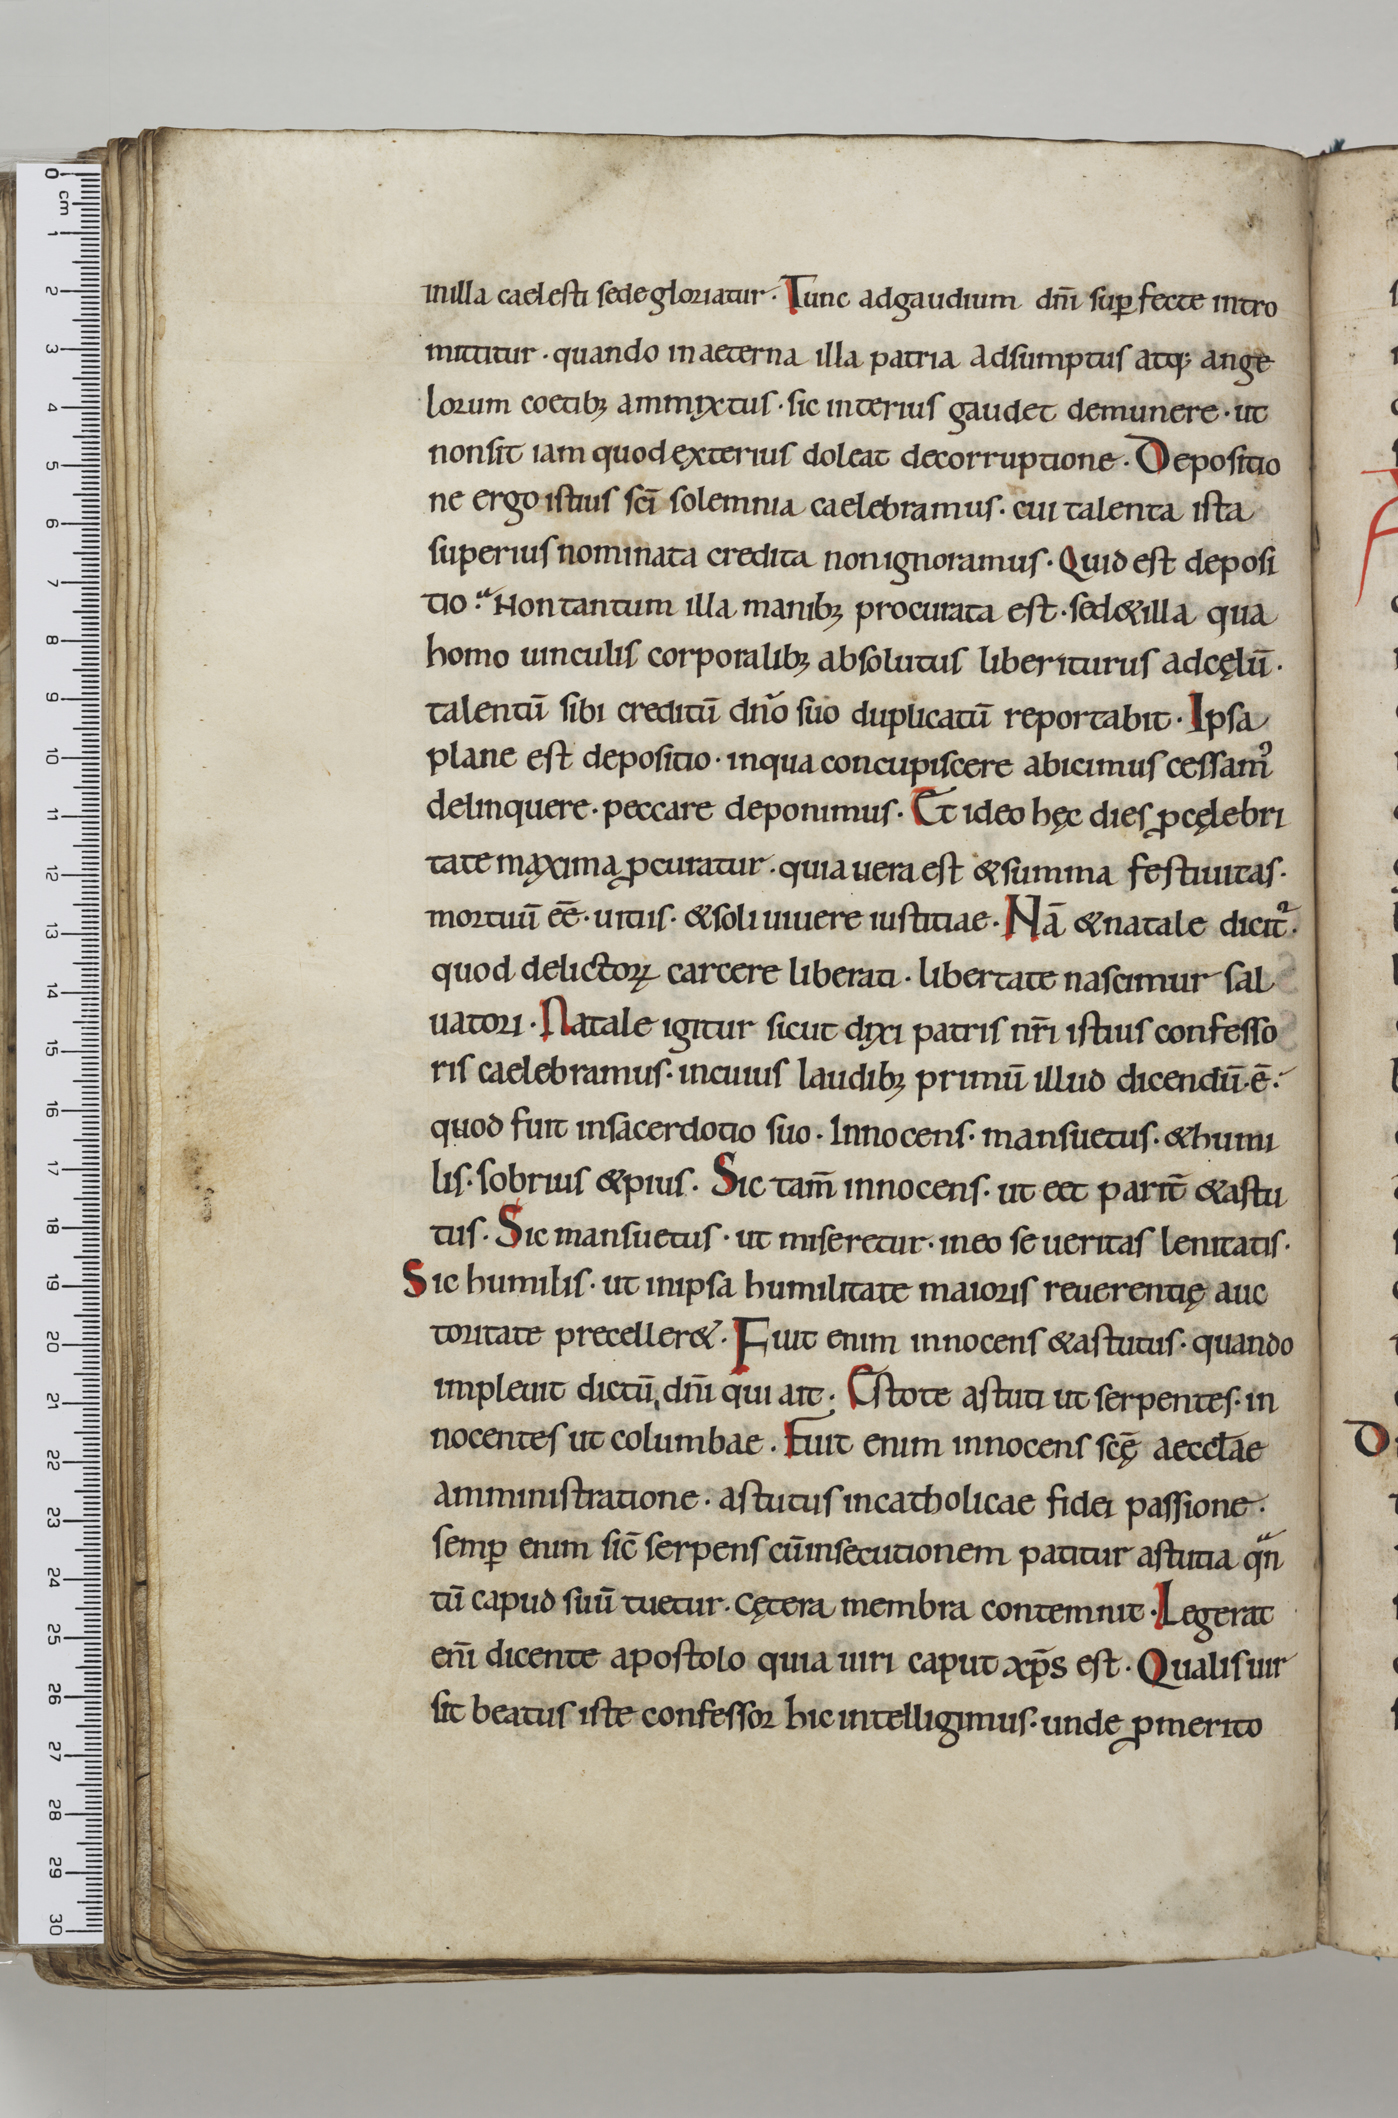 inilla caelesti sede gloriatur. Tunc adgaudium dn̄i sup̱ fecte intro
mittitur. quando inaeterna illa patria adsumptus atq; ange
lorum coetibꝫ ammixtus. sic interius gaudet demunere. ut
nonsit iam quod exterius doleat decorruptione. Depositio
ne ergo istius sc̄i solemnia caelebramus. cui talenta ista
superius nominata credita nonignoramus. Quid est deposi
tio. Non tantum illa manibꝫ procurata est. sed&illa qua
homo uinculis corporalibꝫ absolutus liber iturus adcęlū.
talentū sibi creditū dn̄o suo duplicatū reportabit. Ipsa
plane est depositio. inqua concupiscere abicimus cessamꝰ
delinquere. peccare deponimus. Et ideo hęc dies ꝓcęlebri
tate maxima ꝓcuratur. quia uera est &summa festiuitas.
mortuū eē. uitiis. &soli uiuere iustitiae. Nā &natale dicit᷑.
quod delictoꝝ carcere liberati. libertate nascimur sal
uatori. Natale igitur sicut dixi patris nr̄i istius confesso
ris caelebramus. incuius laudibꝫ primū illud dicendū.ē.
quod fuit insacerdotio suo. Innocens. mansuetus. &humi
lis. sobrius &pius. Sic tam̄ innocens. ut eēt parit̄ &astu
tus. Sic mansuetus. ut miseretur. ineo seueritas lenitatis.
Sic humilis. ut inipsa humilitate maioris reuerentię auc
toritate preceller&. Fuit enim innocens &astutus. quando
impleuit dictū dn̄i qui ait. Estote astuti ut serpentes. in
nocentes ut columbae. Fuit enim innocens scę̄ aeccƚae
amministratione. astutus incatholicae fidei passione.
semꝑ enim sic̄ serpens cūinsecutionem patitur astutia qn̄
tū capud suū tuetur. cętera membra contemnit. Legerat
eni̅ dicente apostolo quia uiri caput xp̄s est. Qualis uir
sit beatus iste confessor hic intelligimus. unde ꝓmerito